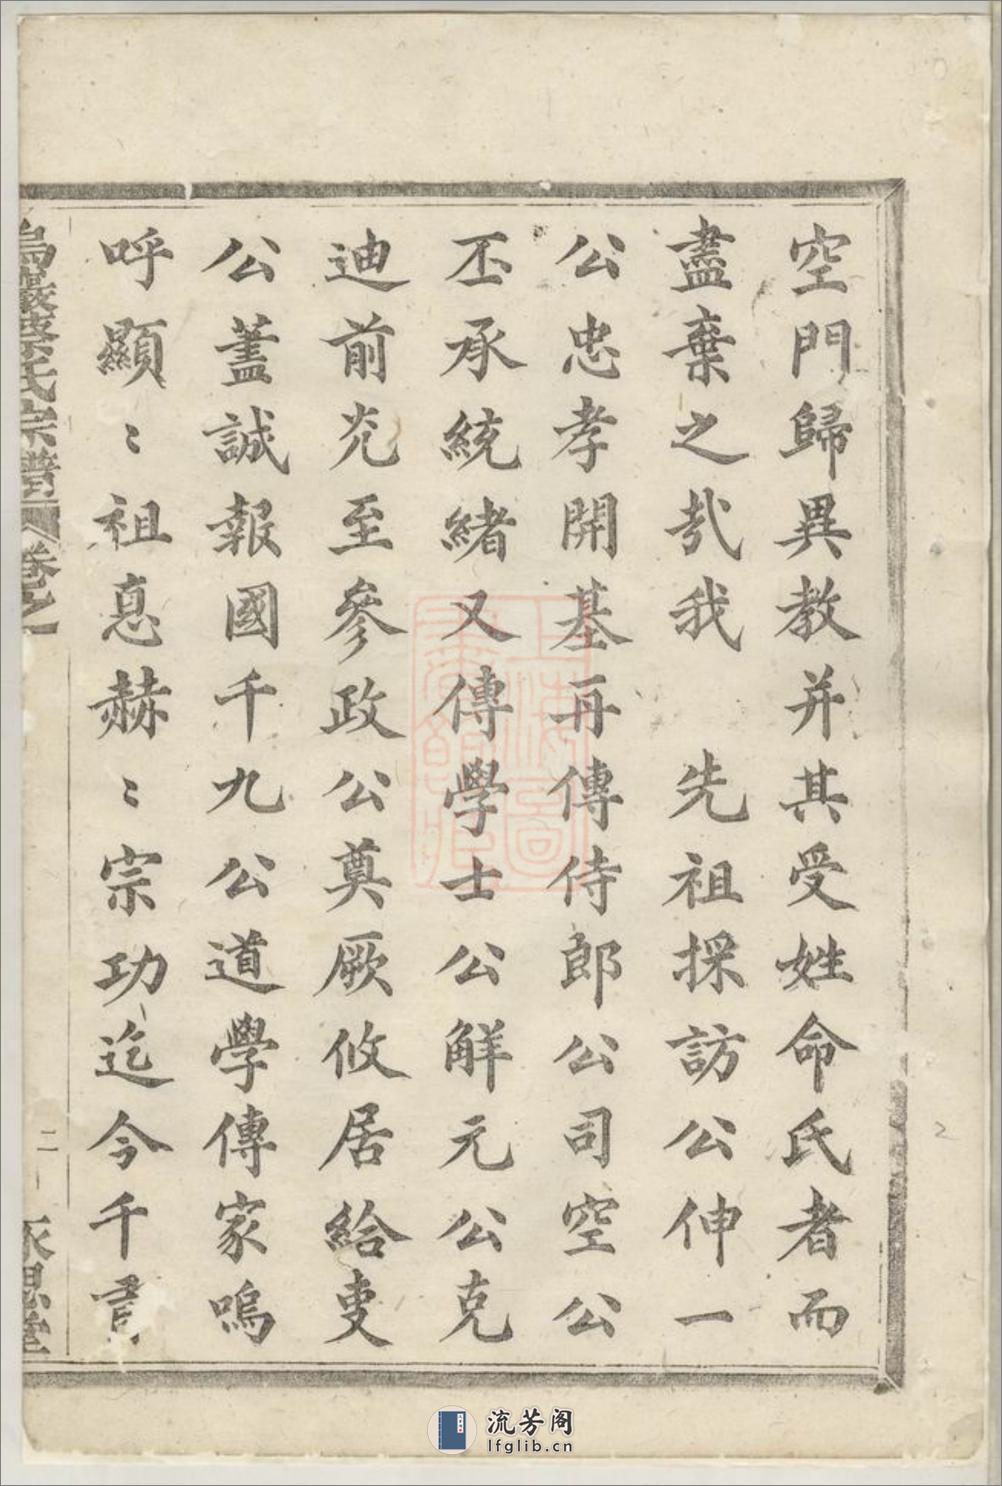 空門歸異教并其受姓命氏者而
盡棄之哉我 先祖採訪公伸一
公忠孝開基再傳侍郎公司空公
丕承統緒又傳學士公解元公克
迪前光至參政公奠厥攸居給叓
公蓋誠報國千九公道學傳家嗚
呼顯〻祖悳赫〻宗功迄今千
烏巖蔡氏宗譜 卷之一
二
永思堂
上海圖書館藏
2
流芳阁
lfglib.cn